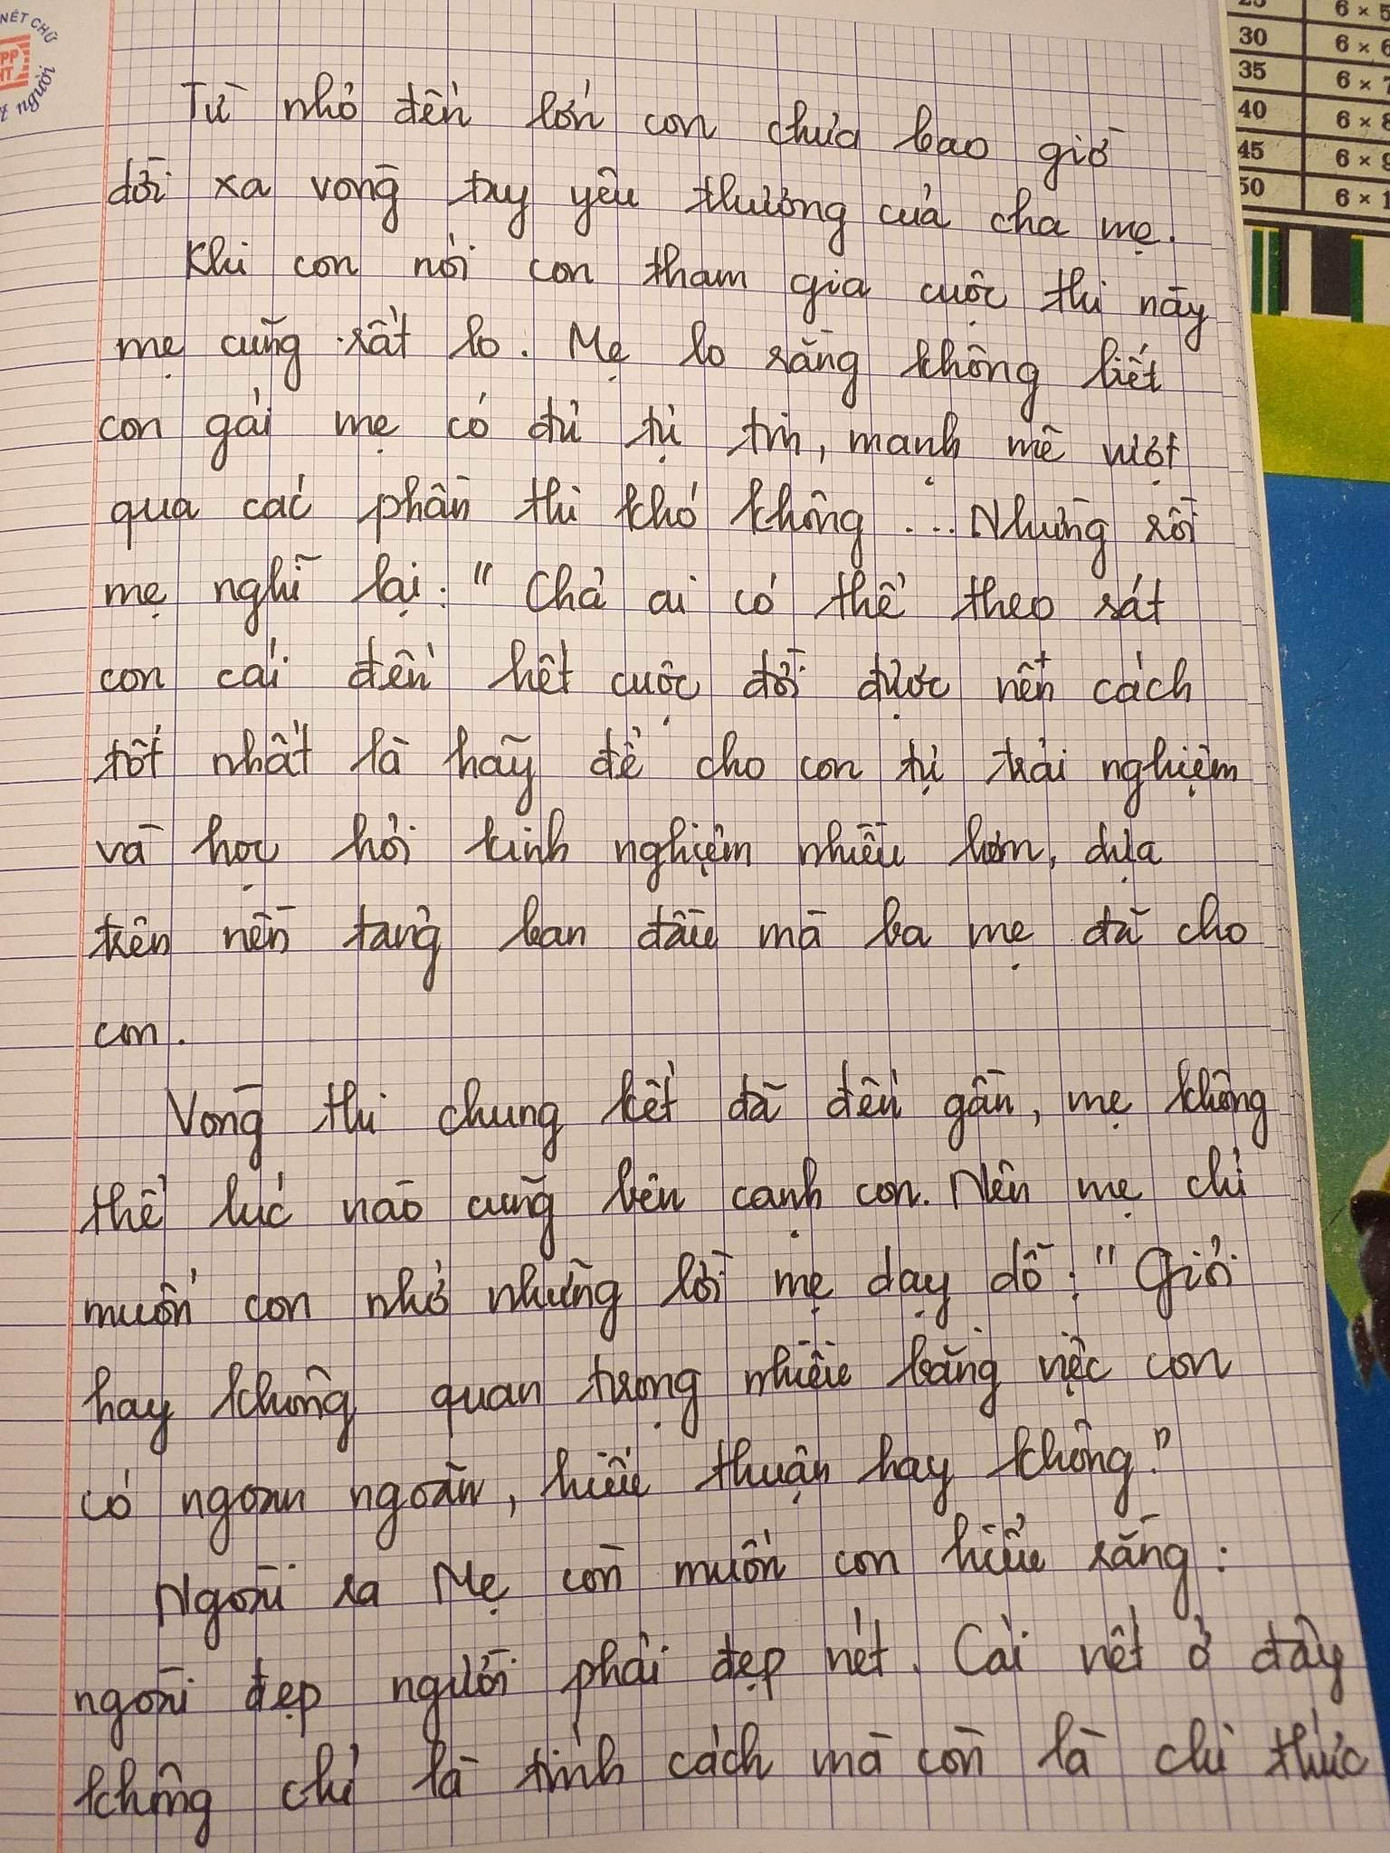 NÉT CHỮ
PP
HT
người
Từ nhỏ đến lớn con chưa bao giờ
dời xa vòng tay yêu thương của cha mẹ.
Khi con nói con tham gia cuộc thi này
mẹ cũng rất lo. Mẹ lo rằng không biết
con gái mẹ có đủ tự tin, mạnh mẽ vượt
qua các phần thi khó không ... Nhưng rồi
mẹ nghĩ lại: "Chả ai có thể theo sát
con cái đến hết cuộc đời được nên cách
tốt nhất là hãy để cho con tự trải nghiệm
và học hỏi kinh nghiệm nhiều hơn, dựa
trên nền tảng ban đầu mà ba mẹ đã cho
con.
Vòng thi chung kết đã đến gần, mẹ không
thể lúc nào cũng bên cạnh con. Nên mẹ chỉ
muốn con nhớ những lời mẹ dạy dỗ: "Giỏi
hay không quan trọng nhiều bằng việc con
có ngoan ngoãn, hiếu thuận hay không?"
Ngoài ra Mẹ còn muốn con hiểu rằng:
ngoài đẹp người phải đẹp nết. Cái nết ở đây
không chỉ là tính cách mà còn là chi thức
25
30
35
40
45
50
6 × 5
6 × 6
6 × 7
6 × 8
6 × 9
6 × 1